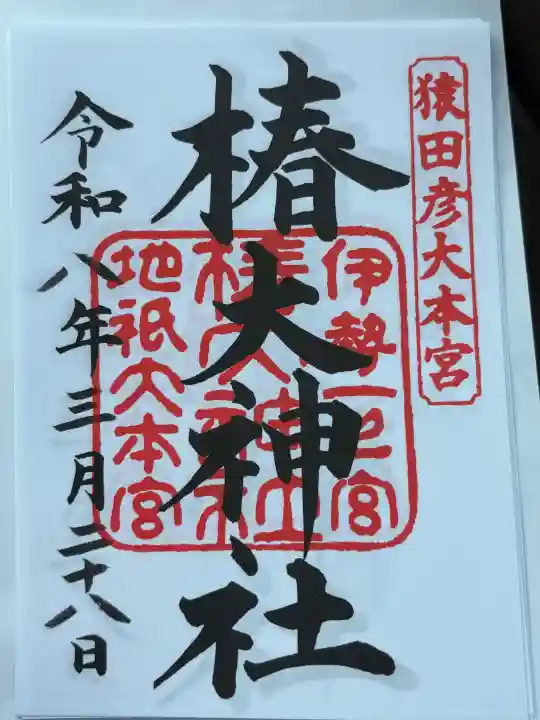 猿田彦大本宮
伊勢一之宮
椿大神社
地祇大本宮
椿大神社
令和八年三月二十八日